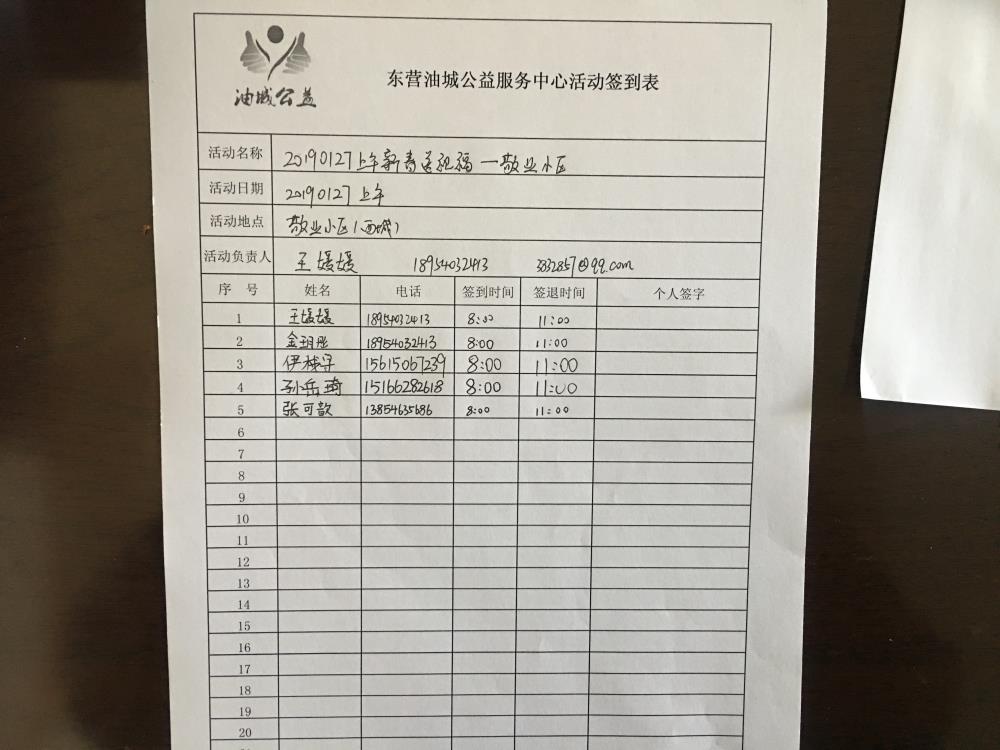 油城公益
东营油城公益服务中心活动签到表
活动名称 20190127上午新春送祝福—敬业小区
活动日期 20190127上午
活动地点 敬业小区(西城)
活动负责人 王媛媛 18954032413 3832857@qq.com
序号 姓名 电话 签到时间 签退时间 个人签字
1 王媛媛 18954032413 8:00 11:00
2 金玥彤 18954032413 8:00 11:00
3 15615067239 8:00 11:00
4 孙岳琦 15166282618 8:00 11:00
5 张可歆 13854635686 8:00 11:00
6
7
8
9
10
11
12
13
14
15
16
17
18
19
20